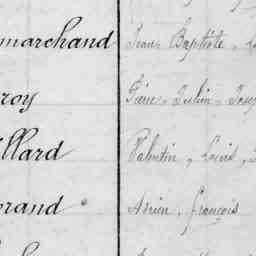 marchand Jean-Baptiste,
roy Pierre-Julien-Josep
llard Valentin, Louis,
rand Adrien, François